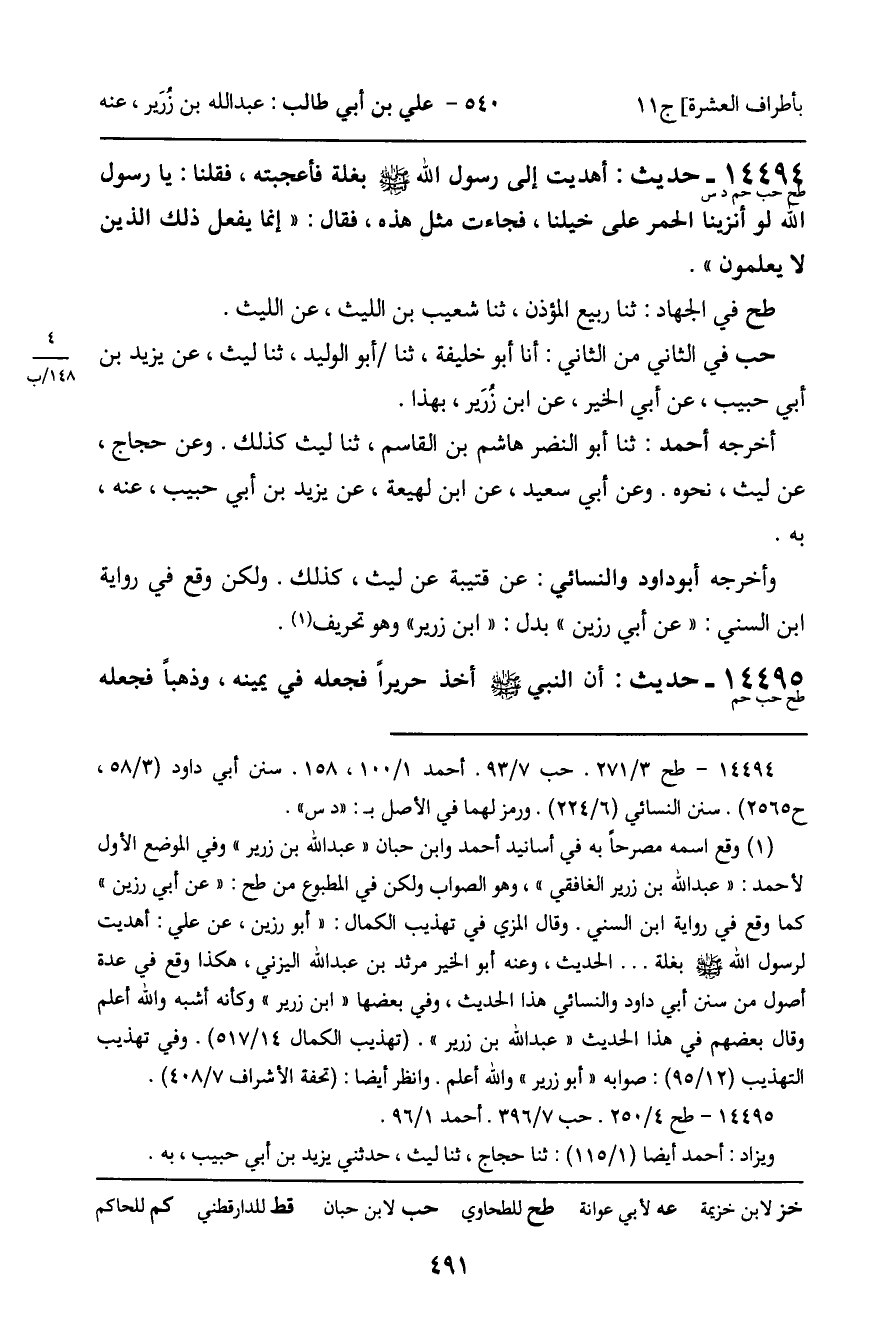 بأطراف العشرة] ج١١ ٥٤٠ - علي بن أبي طالب : عبدالله بن زُرَير ، عنه
١٤٤٩٤ - حديث : أهديت إلى رسول الله ﷺ بغلة فأعجبته ، فقلنا : يا رسول
طح حب حم د س
الله لو أنزينا الحمر على خيلنا ، فجاءت مثل هذه ، فقال : « إنما يفعل ذلك الذين
لا يعلمون » .
طح في الجهاد : ثنا ربيع المؤذن ، ثنا شعيب بن الليث ، عن الليث .
حب في الثاني من الثاني : أنا أبو خليفة ، ثنا /أبو الوليد ، ثنا ليث ، عن يزيد بن
٤
١٤٨/ب
أبي حبيب ، عن أبي الخير ، عن ابن زُرَير ، بهذا .
أخرجه أحمد : ثنا أبو النضر هاشم بن القاسم ، ثنا ليث كذلك . وعن حجاج ،
عن ليث ، نحوه . وعن أبي سعيد ، عن ابن لهيعة ، عن يزيد بن أبي حبيب ، عنه ،
به .
وأخرجه أبوداود والنسائي : عن قتيبة عن ليث ، كذلك . ولكن وقع في رواية
ابن السني : « عن أبي رزين » بدل : « ابن زرير» وهو تحريف(١) .
١٤٤٩٥ - حديث : أن النبي ﷺ أخذ حريراً فجعله في يمينه ، وذهباً فجعله
طح حب حم
١٤٤٩٤ - طح ٢٧١/٣ . حب ٩٣/٧ . أحمد ١٠٠/١ ، ١٥٨ . سنن أبي داود (٥٨/٣ ،
ح٢٥٦٥) . سنن النسائي (٢٢٤/٦) . ورمز لهما في الأصل بـ : «د س» .
(١) وقع اسمه مصرحاً به في أسانيد أحمد وابن حبان « عبدالله بن زرير » وفي الموضع الأول
لأحمد : « عبدالله بن زرير الغافقي » ، وهو الصواب ولكن في المطبوع من طح : « عن أبي رزين »
كما وقع في رواية ابن السني . وقال المزي في تهذيب الكمال : « أبو رزين ، عن علي : أهديت
لرسول الله ﷺ بغلة ... الحديث ، وعنه أبو الخير مرثد بن عبدالله اليزني ، هكذا وقع في عدة
أصول من سنن أبي داود والنسائي هذا الحديث ، وفي بعضها « ابن زرير » وكأنه أشبه والله أعلم
وقال بعضهم في هذا الحديث « عبدالله بن زرير » . (تهذيب الكمال ٥١٧/١٤) . وفي تهذيب
التهذيب (٩٥/١٢) : صوابه « أبو زرير » والله أعلم . وانظر أيضا : (تحفة الأشراف ٤٠٨/٧) .
١٤٤٩٥ - طح ٢٥٠/٤ . حب ٣٩٦/٧ . أحمد ٩٦/١ .
ويزاد : أحمد أيضا (١١٥/١) : ثنا حجاج ، ثنا ليث ، حدثني يزيد بن أبي حبيب ، به .
خز لابن خزيمة عه لأبي عوانة طح للطحاوي حب لابن حبان قط للدارقطني كم للحاكم
٤٩١